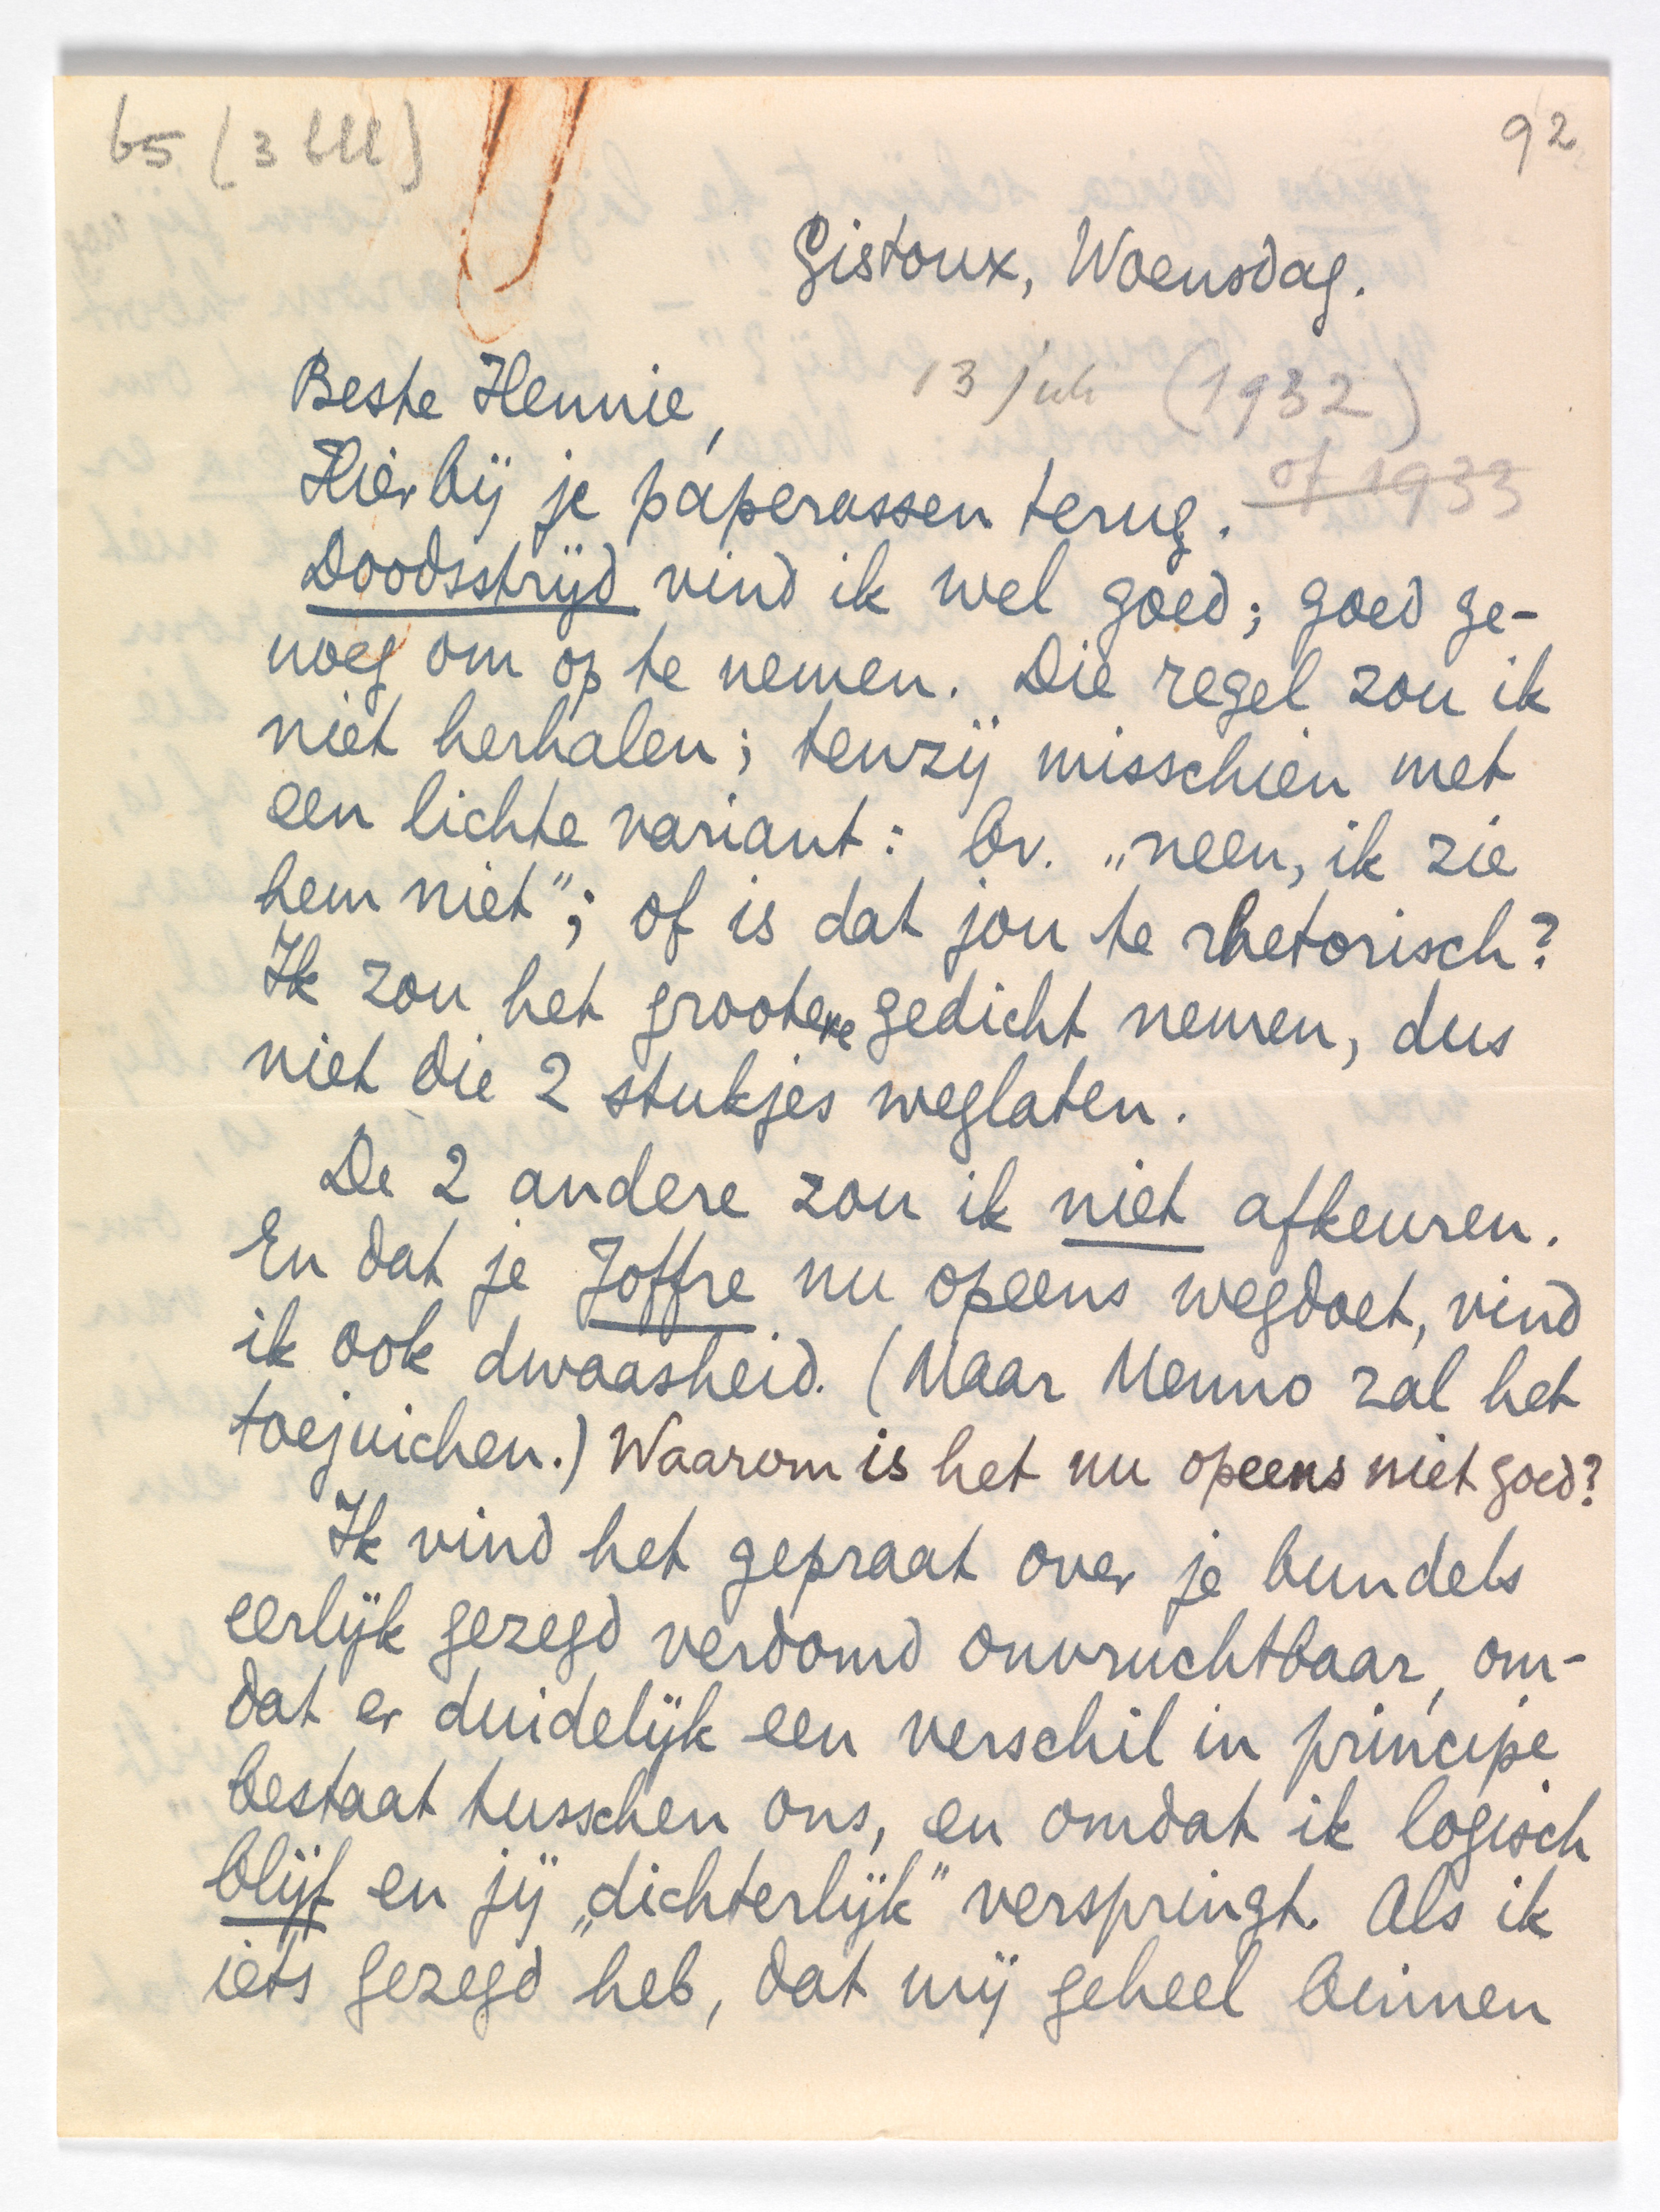 65 (3 bll)
92
Gistoux, Woensdag.
13 juli (1932)
of 1933
Beste Hennie,
Hierbij je paperassen terug.
Doodsstrijd vind ik wel goed; goed ge-
noeg om op te nemen. Die regel zou ik
niet herhalen; tenzij misschien met
een lichte variant: bv. „neen, ik zie
hem niet"; of is dat jou te rhetorisch?
Ik zou het grootere gedicht nemen, dus
niet die 2 stukjes weglaten.
De 2 andere zou ik niet afkeuren.
En dat je Joffre nu opeens wegdoet, vind
ik ook dwaasheid. (Maar Menno zal het
toejuichen.) Waarom is het nu opeens niet goed?
Ik vind het gepraat over je bundels
eerlijk gezegd verdomd onvruchtbaar, om-
dat er duidelijk een verschil in principe
bestaat tusschen ons, en omdat ik logisch
blijf en jij „dichterlijk" verspringt. Als ik
iets gezegd heb, dat mij geheel binnen